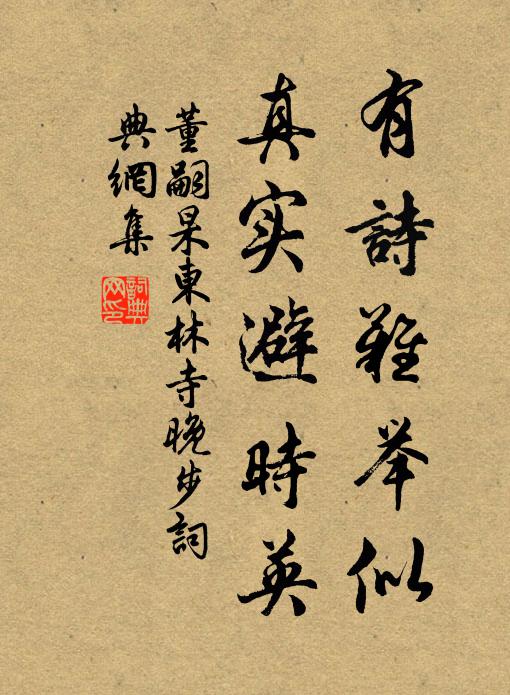 有詩難举似
真实避時英
董嗣杲東林寺晚步詞
典網集
詞典
网印